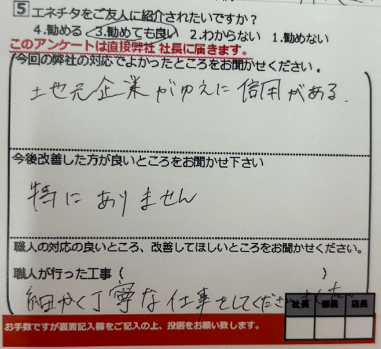 5 エネチタをご友人に紹介されたいですか？
4.勧める 3.勧めても良い 2.わからない 1.勧めない
このアンケートは直接弊社 社長に届きます。
今回の弊社の対応でよかったところをお聞かせください。
土地元企業がゆえに信用がある.
今後改善した方が良いところをお聞かせ下さい
特にありません
職人の対応の良いところ、改善してほしいところをお聞かせください。
職人が行った工事（ ）
細かく丁寧な仕事をしてくださ
社長 部長 店長
お手数ですが裏面記入欄をご記入の上、投函をお願い致します。